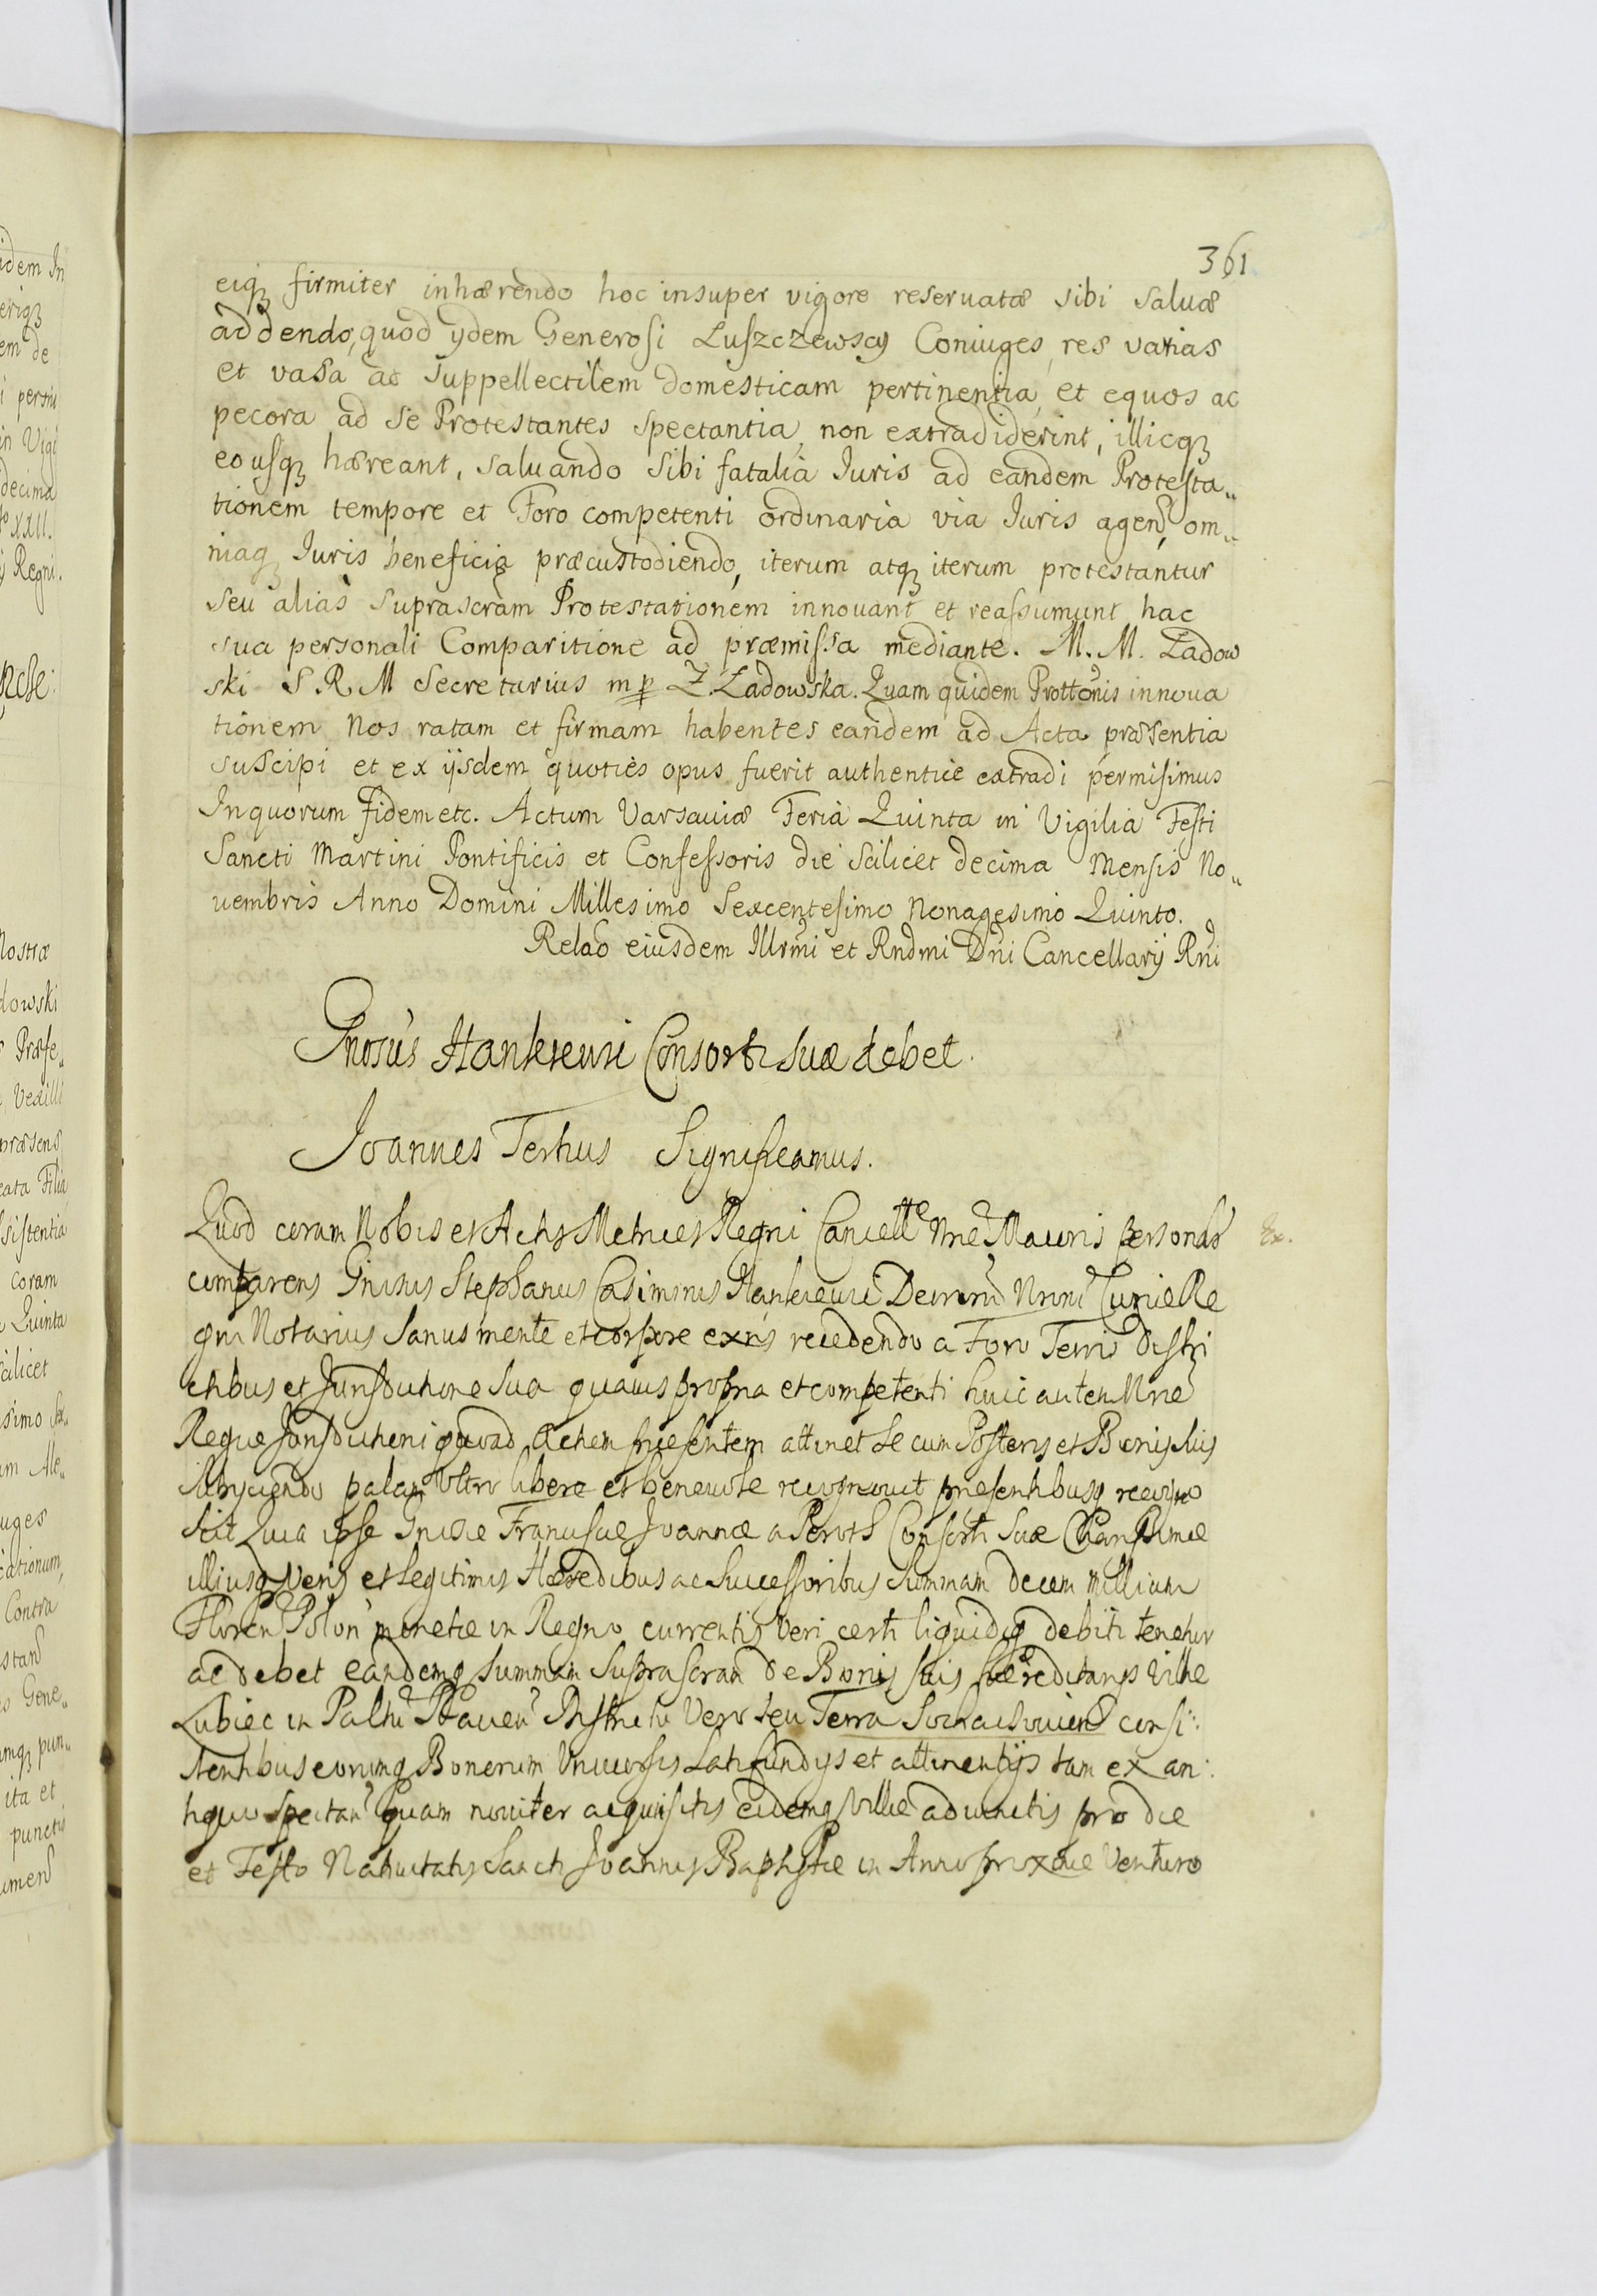 361
eiq₃ firmiter inhærendo hoc insuper vigore reseruatæ sibi saluæ
addendo, quod ijdem Generosi Luszczewscy Coniuges, res varias
et vasa ac suppellectilem domesticam pertinentia, et equos ac
pecora ad se Protestantes spectantia, non extradiderint, illicq₃
eousq₃ hæreant, saluando sibi fatalia Iuris ad eandem Protesta„
tionem tempore et Foro competenti ordinaria via Iuris agend, om„
niaq₃ Iuris beneficia præcustodiendo, iterum atq₃ iterum protestantur
seu alias suprascram Protestationem innouant et reassumunt hac
sua personali Comparitione ad præmissa mediante. M. M. Ladow
ski S R M Secretarius mp Z. Ladowska. Quam quidem Prottonis innoua
tionem Nos ratam et firmam habentes eandem ad Acta præsentia
suscipi et ex ijsdem quoties opus fuerit authentice extradi permisimus
In quorum fidem etc. Actum Varsauiæ Feria Quinta in Vigilia Festi
Sancti Martini Pontificis et Confessoris die scilicet decima Mensis No„
uembris Anno Domini Millesimo Sexcentesimo Nonagesimo Quinto.
Relao eiusdem Illrmi et Rndmi Dni Cancellarij Rni
Gnosus Hankieuri Consorti Suæ debet.
Joannes Tertius Significamus.
Quod coram Nobis et Actis Metrices Regni Cancell Nræ Maioris personalr
comparens Gnosus Stephanus Casimirus Hankieuri Decretor Nrorū Curiæ Re
gni Notarius sanus mente et corpore exns recedendo a Foro Terris Distri
ctibus et Jurisdictione Sua quauis propria et competenti huic autem Nræ
Regiæ Jurisdictioni quoad Actum præsentem attinet se cum Posteris et Bonis suis
subijciendo palam vltro libere et beneuole recognouit præsentibusq recogno
scit Quia ipse Gnosæ Franciscæ Joannæ a Peroth Consorti suæ Charissimæ
illiusq veris et legitimis Hæredibus ac Successoribus summam decem millium
Floren Polon monetæ in Regno currentis veri certi liquidiq debiti tenetur
ac debet eandemq summam suprascram de Bonis suis hæreditarijs Villæ
Lubiec in Palttu Rauen Districtu vero seu Terra Sochaczouien consi„
stentibus eorumq Bonorum vniuersis Latifundijs et attinentijs tam ex an„
tiquo spectan quam nouiter acquisitis eidemq Villæ adiunctis pro die
et Festo Natiuitatis Sancti Joannis Baptistæ in Anno proxime venturo